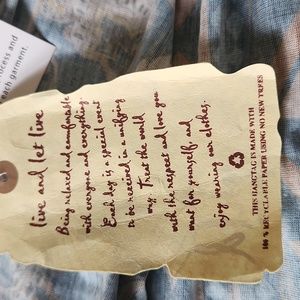 ocess and
each garment.
live and let live
Being relaxed and comfortable
with everyone and everything.
Each day is a special event
to be received in a unifying
way. Treat the world
with the respect and love you
want for yourself, and
enjoy wearing our clothes.
THIS HANGTAG IS MADE WITH
100 % RECYCLABLE PAPER USING NO NEW TREES